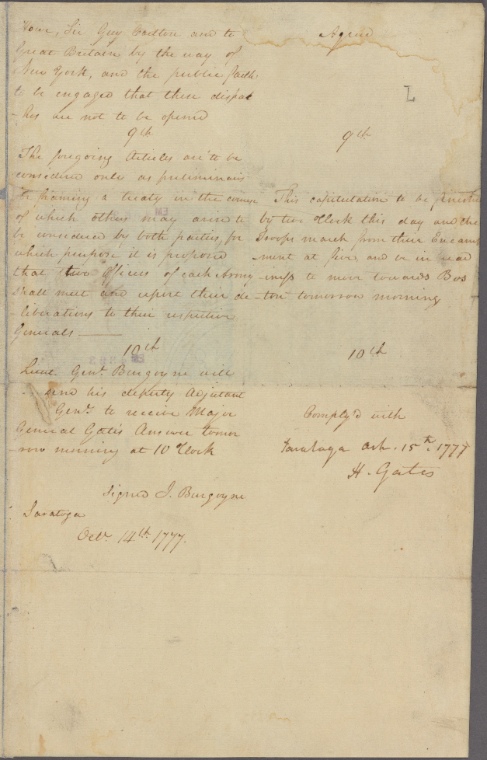 Howe, Sir Guy Carlton and to
Great Britain by the way of
New York, and the public faith
to be engaged that these dispat
-ches are not to be opened
9th
The foregoing Articles are to be
considered only as preliminaries
framing a treaty in the course
of which others may arise to
be considered by both parties, for
which purpose it is proposed
that two Officers of each Army
shall meet and report their de-
liberations to their respective
Generals
10th
Lieut. Genl. Burgoyne will
send his deputy Adjutant
Genl. to receive Major
General Gates Answer tomor
-row morning at 10 oClock
Signed J. Burgoyne
Saratoga
Octr. 14th. 1777.
Agreed
L
9th
This capitulation to be finished
by two oClock this day and the
Troops march from their Encamp
-ment at five, and be in read
-iness to move towards Bos
-ton tomorrow morning
10th
Comply'd with
Saratoga Oct. 15th. 1777
H. Gates